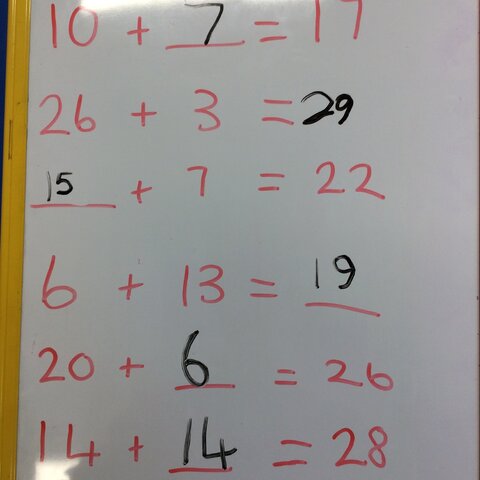 10 + 7 = 17
26 + 3 = 29
15 + 7 = 22
6 + 13 = 19
20 + 6 = 26
14 + 14 = 28